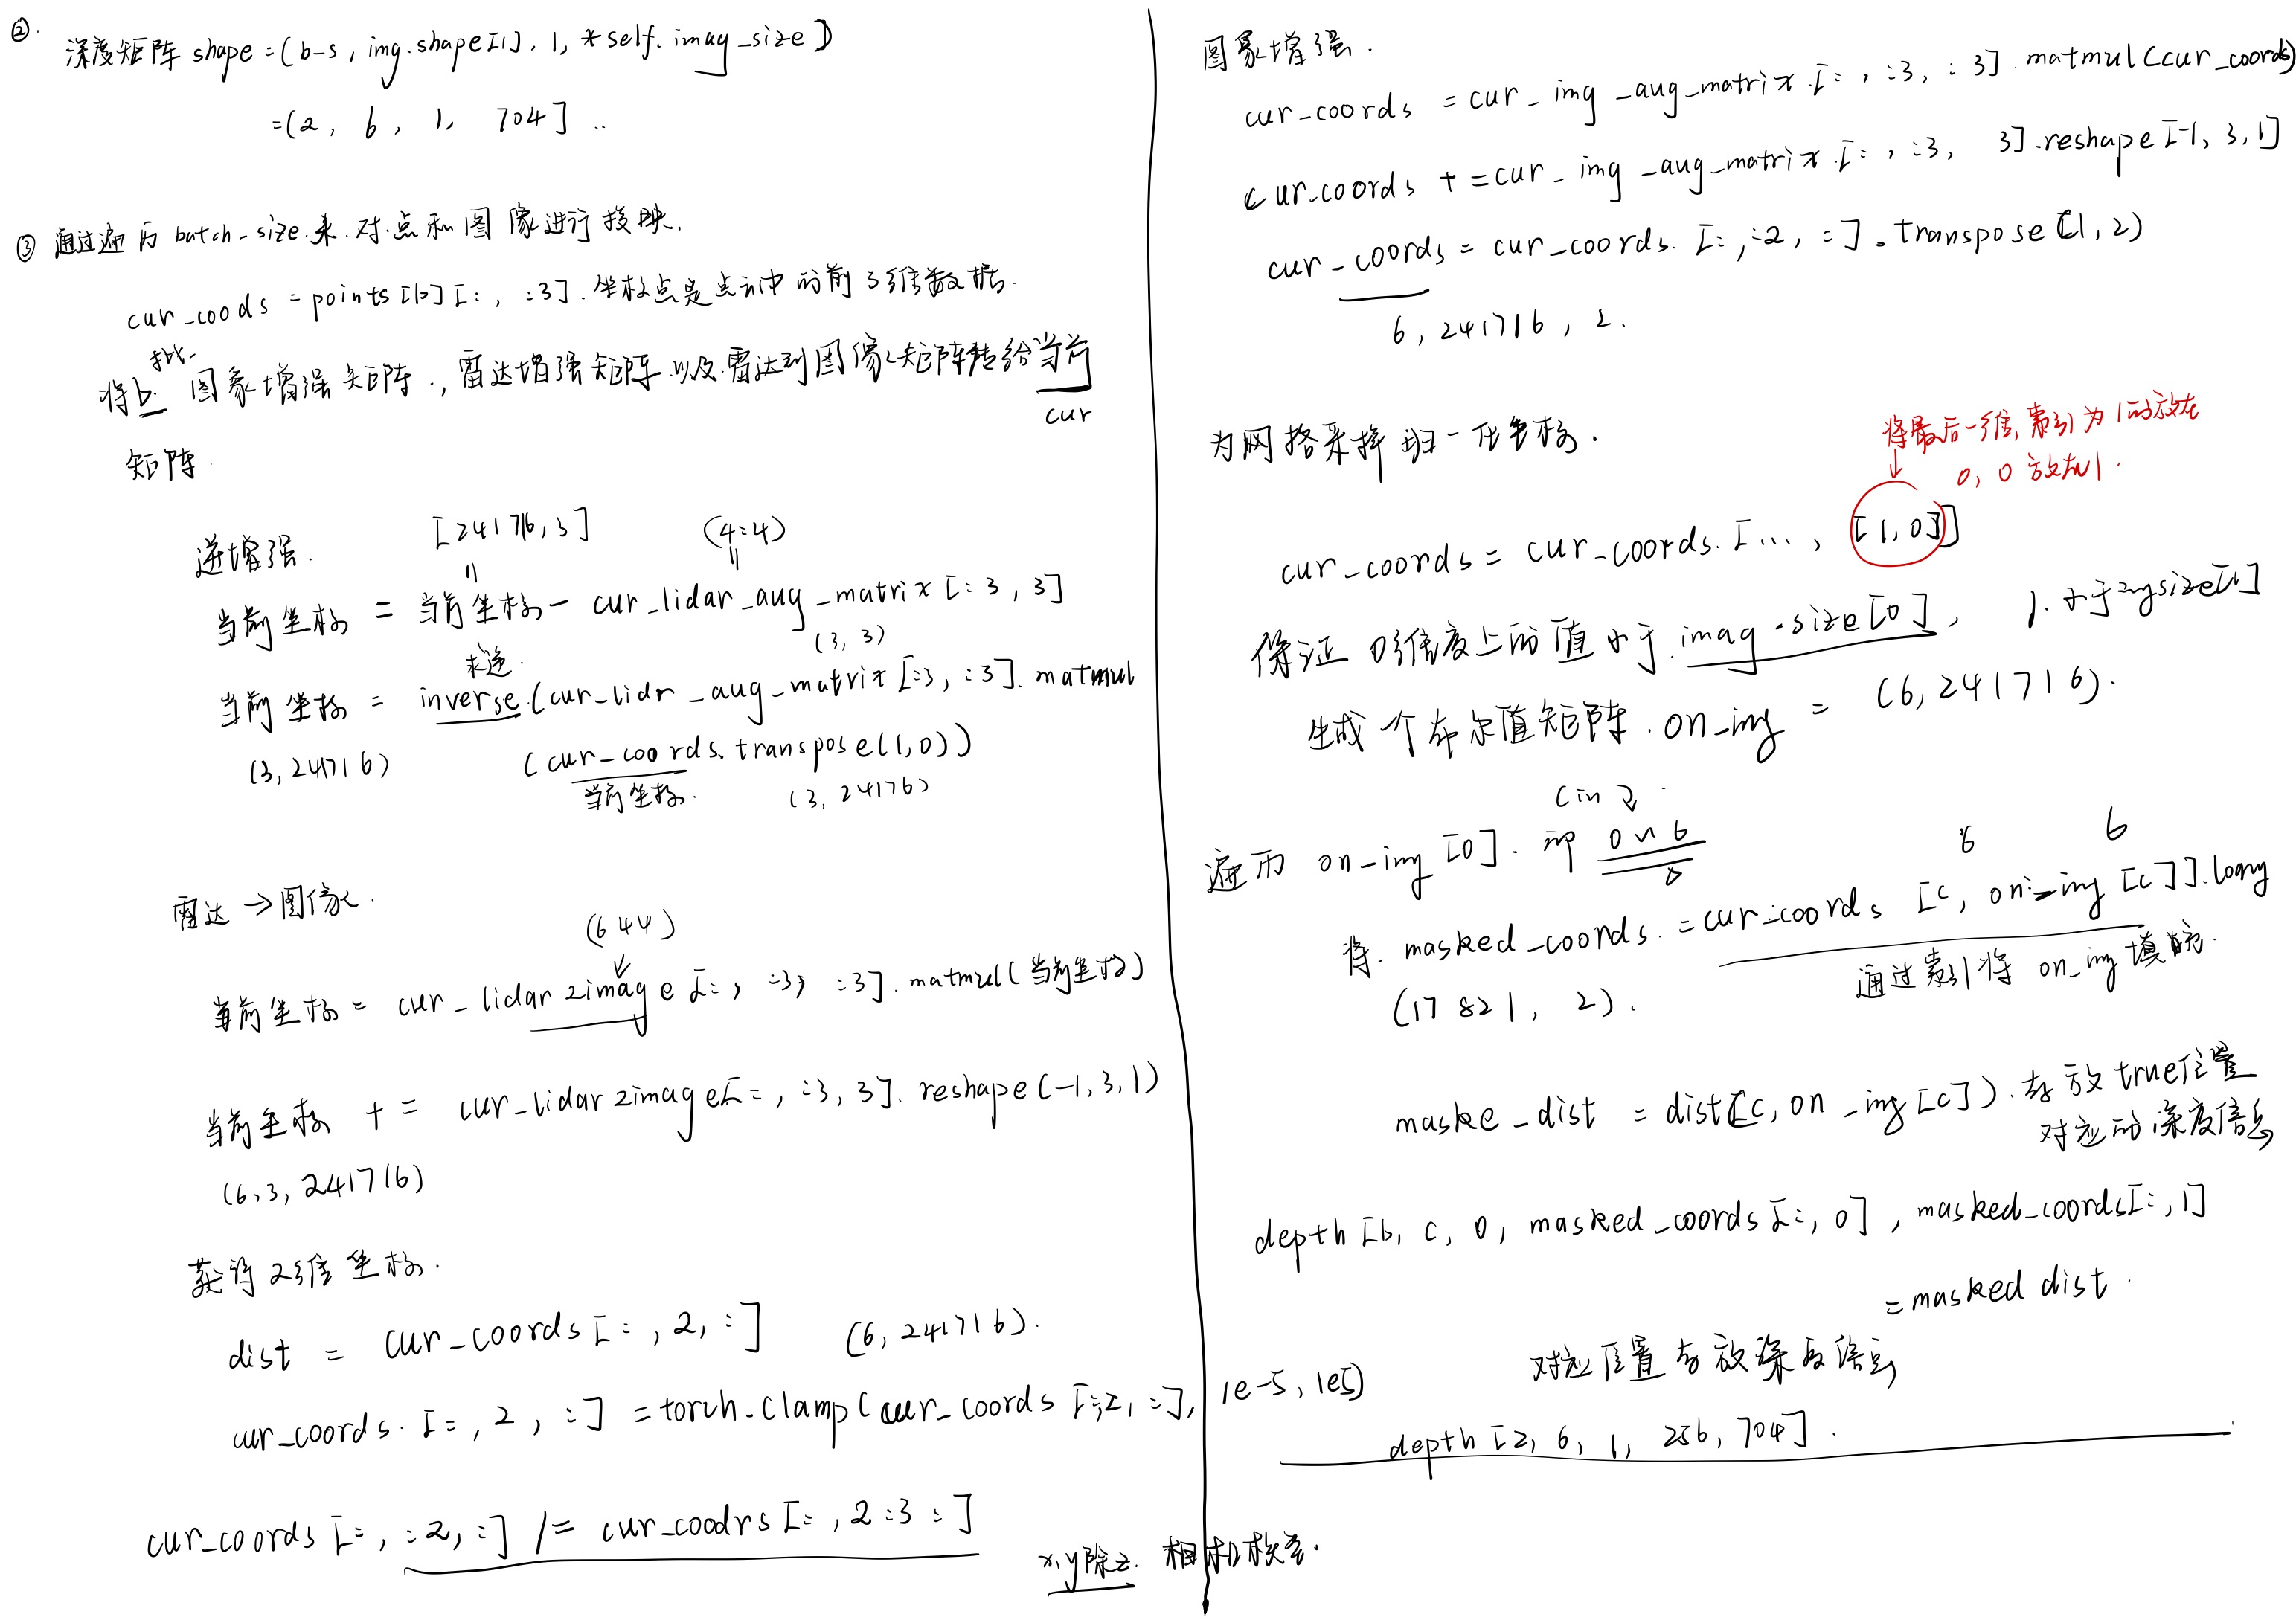 ②.
深度矩阵 shape = (b-s, img.shape[1], 1, *self.imag_size])
= (2, 6, 1, 704] ..
③ 通过遍历 batch-size.来.对.点和图像进行投映.
cur_coods = points[b][:, :3]. 坐标点是点云中的前3维数据.
将b. 图象增强矩阵., 雷达增强矩阵.以及.雷达到图像矩阵转给当前
cur
矩阵.
逆增强.
[241716, 3]
(4:4)
当前坐标 = 当前坐标 - cur_lidar_aug_matrix[:3, 3]
(3, 3)
求逆.
当前坐标 = inverse.(cur_lidr_aug_matrix[:3, :3]. matmul
(3, 241716)
(cur_coords.transpose(1,0))
当前坐标.
(3, 24176)
雷达→图像.
(6 4 4)
当前坐标 = cur_lidar2image[:, :3, :3].matmul(当前坐标)
当前坐标 += cur_lidar2image[:, :3, 3]. reshape(-1,3,1)
(6,3,241716)
获得2维坐标.
dist = cur_coords[:, 2, :] (6, 241716).
cur_coords.[:, 2, :] = torch.clamp(cur_coords[:,2, :], 1e-5, 1e5)
cur_coords[:, :2, :] /= cur_coodrs[:, 2:3 :]
x,y除z. 相机模型.
图象增强.
cur_coords = cur_img_aug_matrix.[:, :3, :3].matmul(cur_coords)
cur_coords += cur_img_aug_matrix.[:, :3, 3].reshape[-1, 3, 1]
cur_coords = cur_coords.[:, :2, :].transpose(1,2)
6, 241716, 2.
为网格采样归一化坐标.
将最后一维,索引为1的放在
0, 0放在1.
cur_coords = cur_coords.[..., [1,0]]
保证0维度上的值小于.imag.size[0], 1.小于imgsize[1]
生成个布尔值矩阵.on_img = (6,241716).
C in
遍历 on_img[0]. 即 0~6
6 6
将. masked_coords. = cur_coords [c, on_img[c]].long
(17821, 2).
通过索引将 on_img 填充.
maske_dist = dist[c, on_img[c]). 存放true位置
对应的深度信息
depth[b, c, 0, masked_coords[:, 0], masked_coords[:, 1]
= masked dist.
对应位置存放深度信息
depth[2, 6, 1, 256, 704].